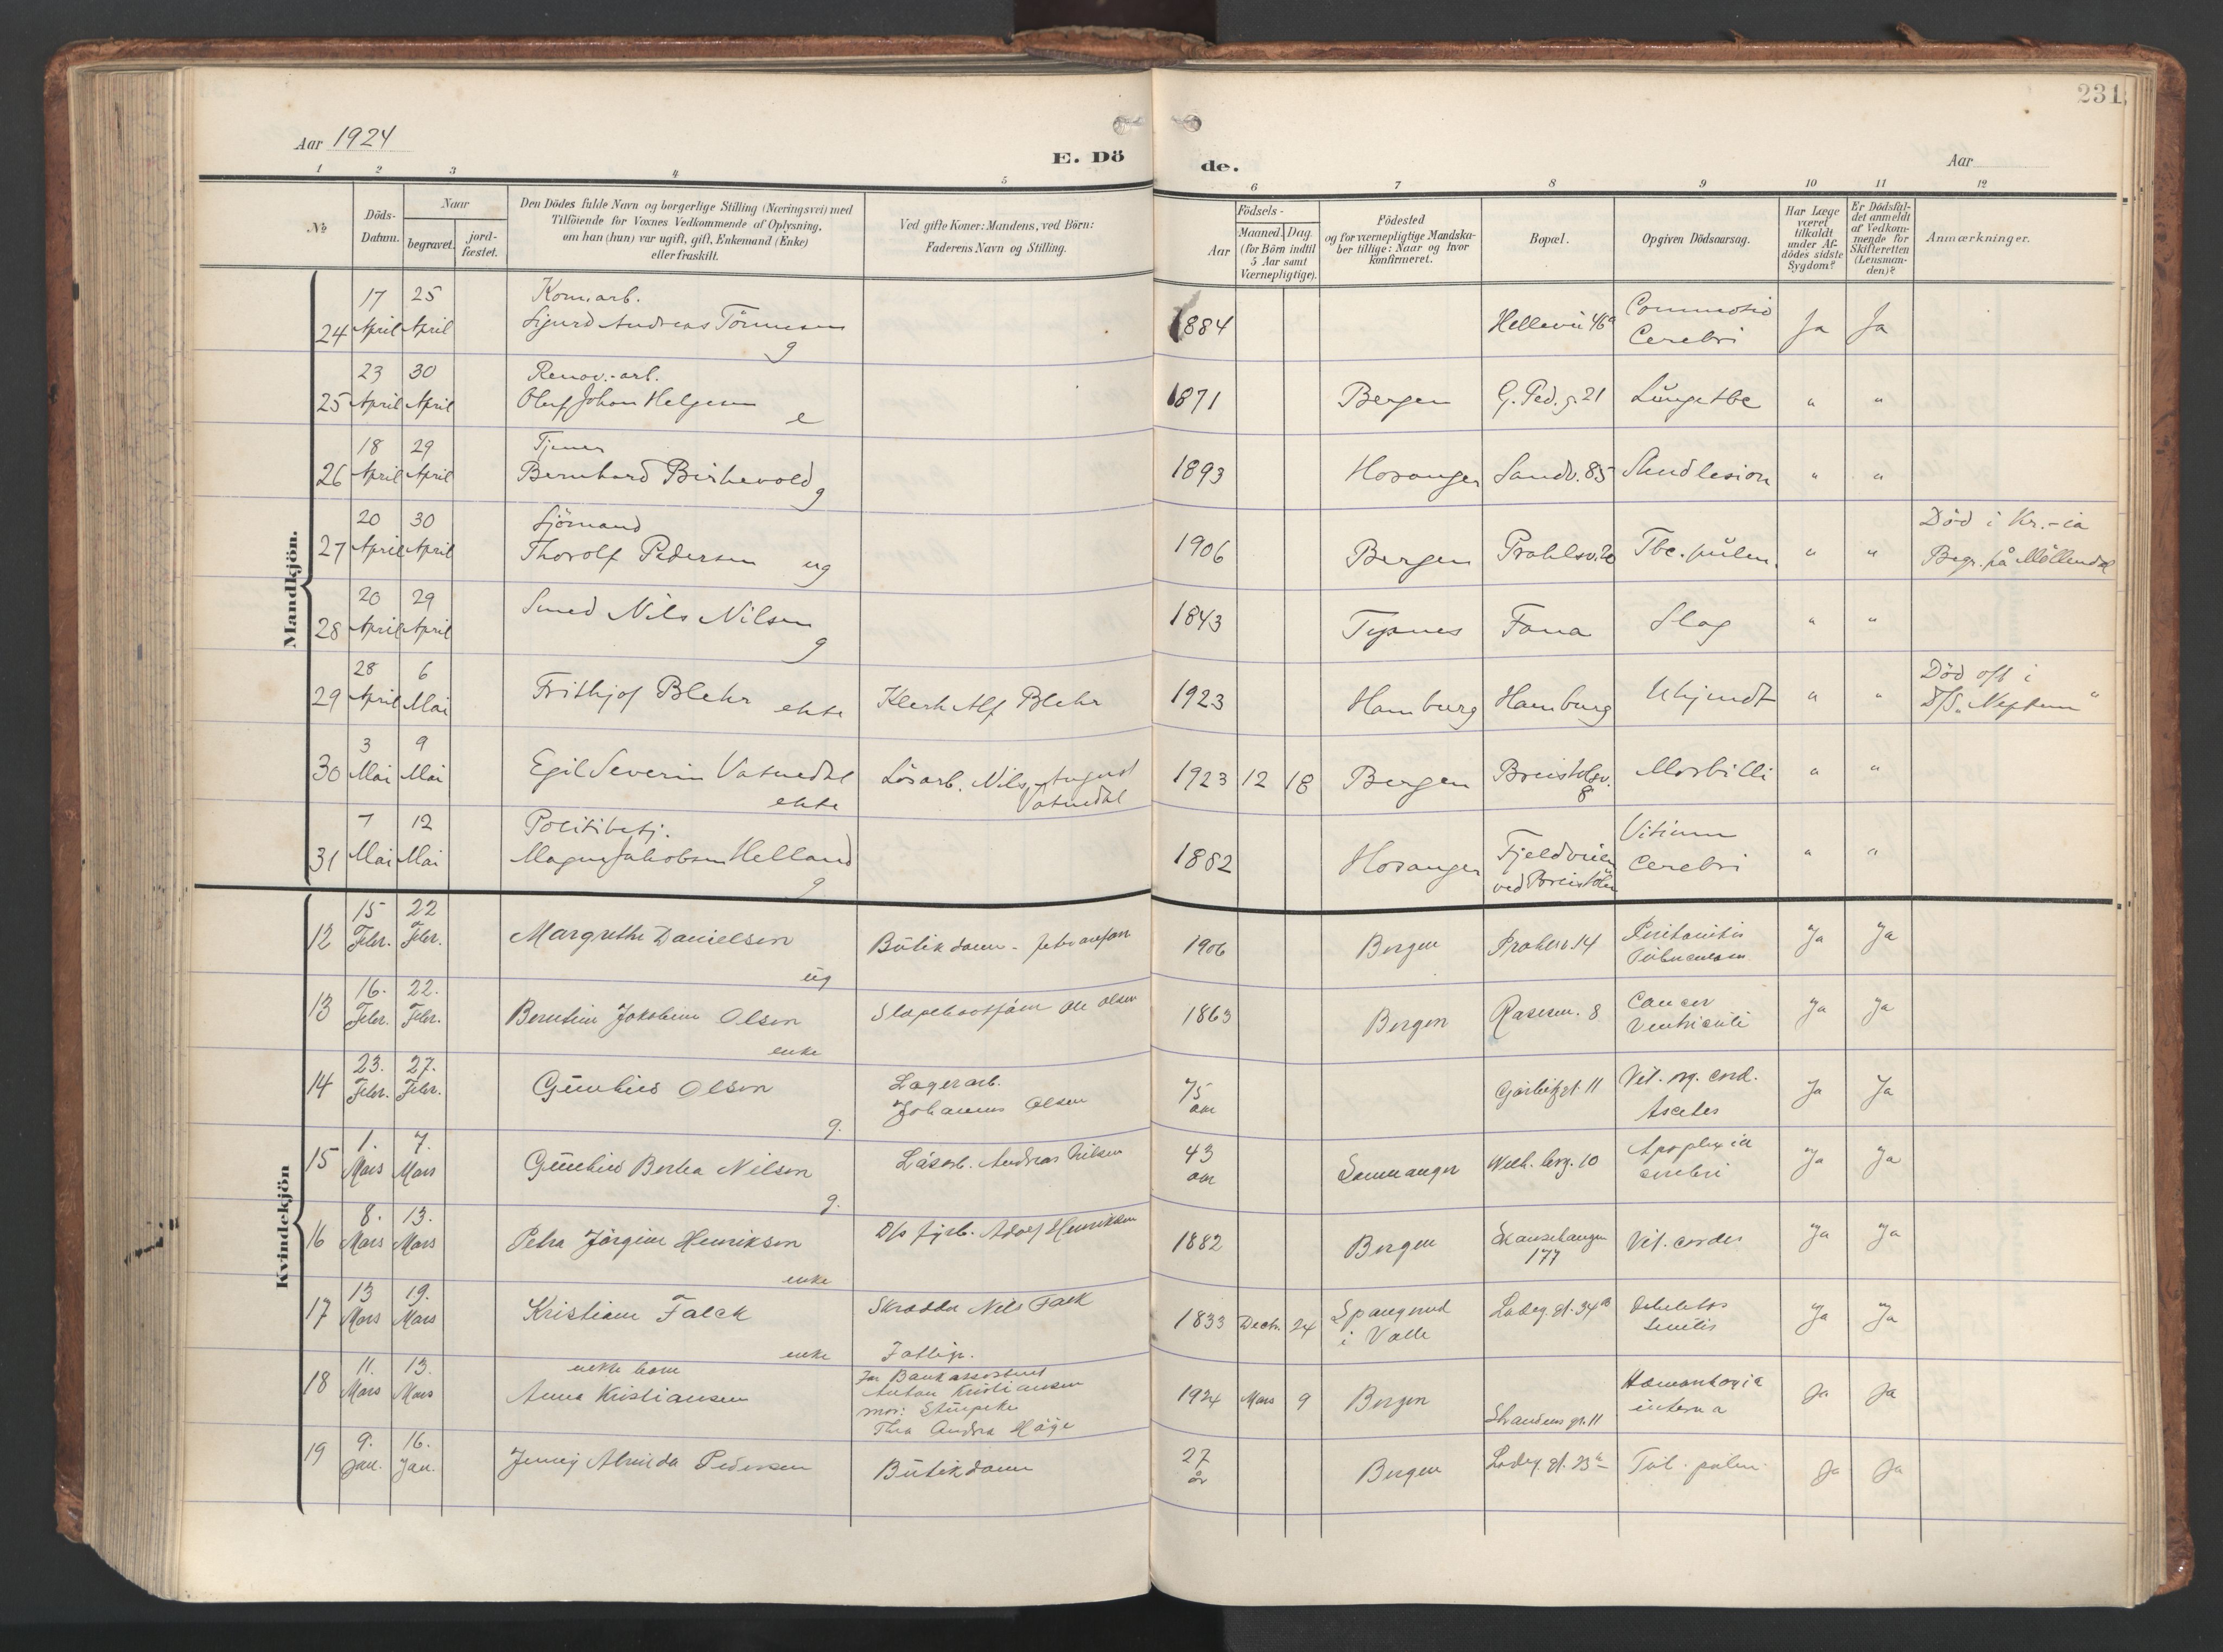 231
Aar 1924
E. Döde.
Aar
1 2 3 4 5 6 7 8 9 10 11 12
№
Döds-Datum.
Naar
begravet.
jordfæstet.
Den Dödes fulde Navn og borgerlige Stilling (Næringsvei) med
Tilföiende for Voxnes Vedkommende af Oplysning,
om han (hun) var ugift, gift, Enkemand (Enke)
eller fraskilt.
Ved gifte Koner: Mandens, ved Börn:
Faderens Navn og Stilling.
Födsels-
Aar
Maaned. Dag.
(for Börn indtil
5 Aar samt
Værnepligtige).
Födested
og for værnepligtige Mandskaber tillige: Naar og hvor
konfirmeret.
Bopæl.
Opgiven Dödsaarsag.
Har Læge
været
tilkaldt
under Afdödes sidste
Sygdom?
Er Dödsfaldet anmeldt
af Vedkommende for
Skifteretten
(Lensmanden)?
Anmærkninger.
Mandkjön.
24 17 April 25 April Kom.arb. Sigurd Andreas Tönnesen g 1884 Helleveien 46a Commotio Cerebri Ja Ja
25 23 April 30 April Renov.-arb. Oluf Johan Helgesen e 1871 Bergen G. Ped. g. 21 Lungetbc " "
26 18 April 29 April Tjener Bernhard Birkevold g 1893 Hosanger Sandv. 85 Skudlesion " "
27 20 April 30 April Sjömand Thorolf Pedersen ug 1906 Bergen Prahlsv. 20 Tbc. pulm. " " Död i Kr.-ia Begr. på Möllendal
28 20 April 29 April Smed Nils Nilsen g 1843 Fana Slag " "
29 28 April 6 Mai Frithjof Blehr ekte Klerk Alf Blehr 1923 Hamburg Hamburg Ukjendt " " Död o/b i D/S. „Neptun"
30 3 Mai 9 Mai Egil Severin Vatnedal ekte Lösarb. Nils August Vatnedal 1923 12 18 Bergen Breistölsv. 8 Morbilli " "
31 7 Mai 12 Mai Politibetj. Magnus Jakobsen Helland g 1882 Hosanger Fjeldveien ved Breistölen Vitium Cerebri " "
Kvindekjön
12 15 Febr. 22 Febr. Margrethe Danielsen ug Butikdame 1906 Bergen Prahlsv. 14 Peritonitis Ja Ja
13 16. Febr. 22. Febr. Jakobine Olsen enke Ole Olsen 1863 Bergen 8 Cancer Ventriculi Ja Ja
14 23. Febr. 27. Febr. Gunhild Olsen g. Lagerarb. Johannes Olsen 75 aar 11 Vit. org. cord. Ascites Ja Ja
15 1. Mars 7. Mars Gunhild Berta Nilsen g. Lösarb. Andreas Nilsen 43 aar Samnanger Welh. berg. 10 Apoplexia cerebri Ja Ja
16 8. Mars 13. Mars Petra Jörgine Henriksen enke D/s fyrb. Adolf Henriksen 1882 Bergen Skansehaugen 177 Vit. cordis Ja Ja
17 13 Mars 19. Mars Kristiane Falck enke Skrædder Nils Falk Fattigv. 1833 Decb. 24 Spangerud i Valle Ladeg. gt. 34b Debilitas senilis Ja Ja
18 11. Mars 13. Mars uekte barn Anna Kristiansen Far Bankassistent Anton Kristiansen mor: Stuepike Thea Andrea Höje 1924 Mars 9 Bergen 11 interna Ja Ja
19 9. Jan. 16. Jan. Jenny Alvilda Pedersen Butikdame 27 år Bergen Ladeg. gt. 23a Tub. pulm. Ja Ja